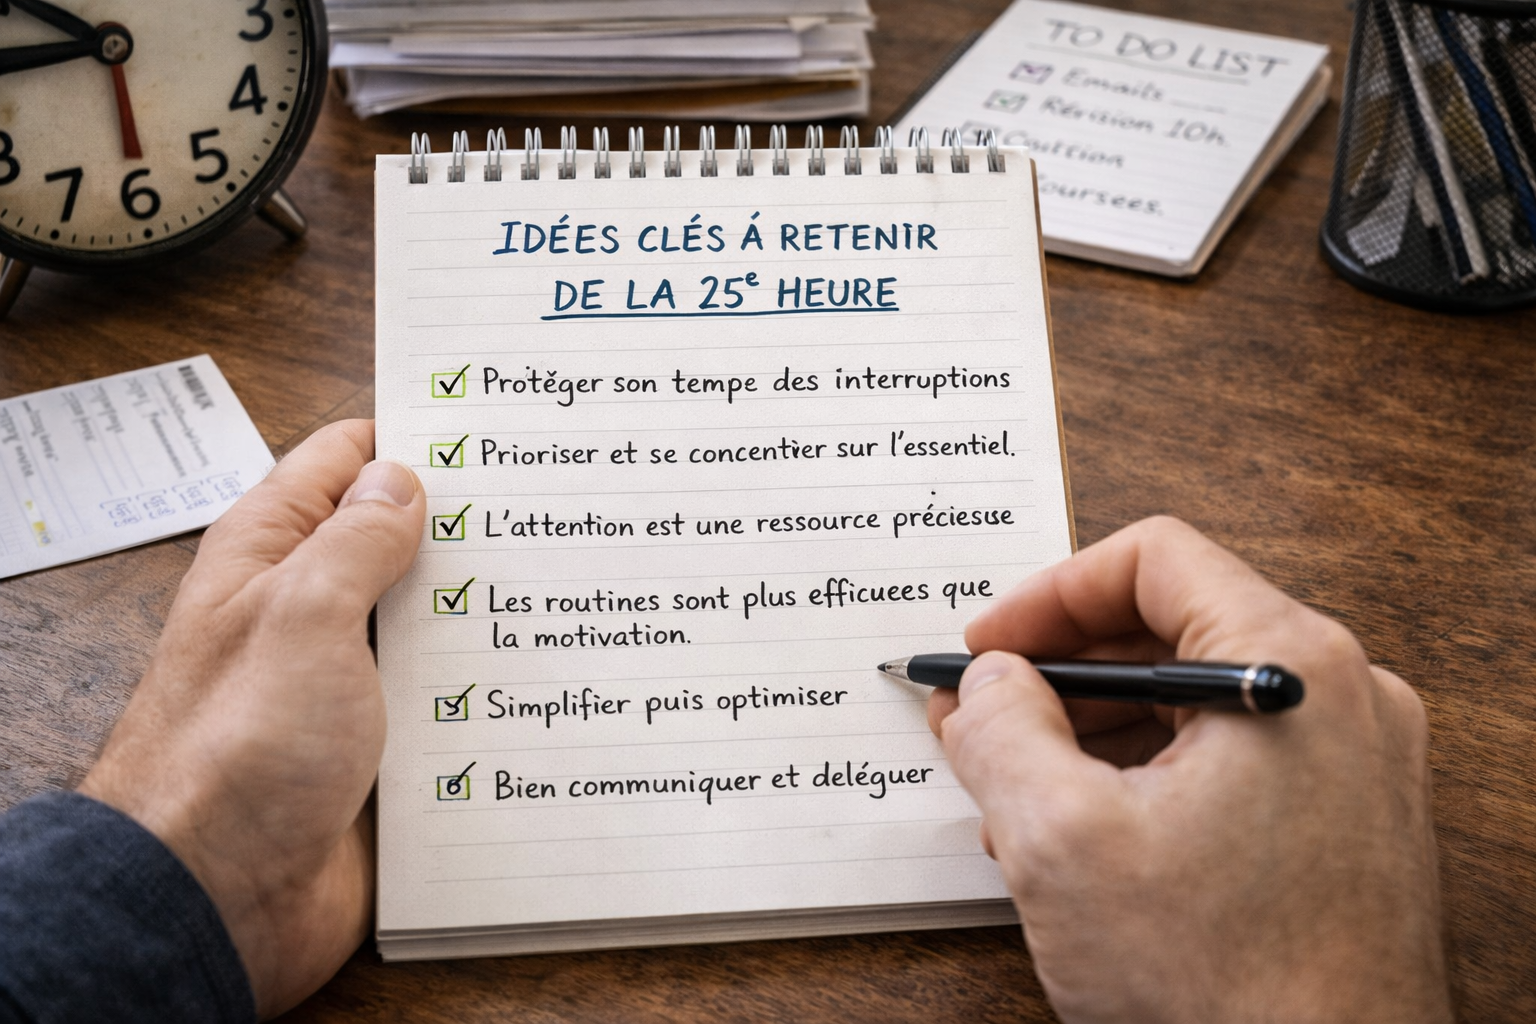 3
4
5
6
7
8
TO DO LIST
Emails
Révision 10h.
IDÉES CLÉS Á RETENIR
DE LA 25e HEURE
Protěger son tempe des interruptions
Prioriser et se concentrer sur l'essentiel.
L'attention est une ressource précieuse
Les routines sont plus efficuees que
la motivation.
Simplifier puis optimiser
6 Bien communiquer et deléguer